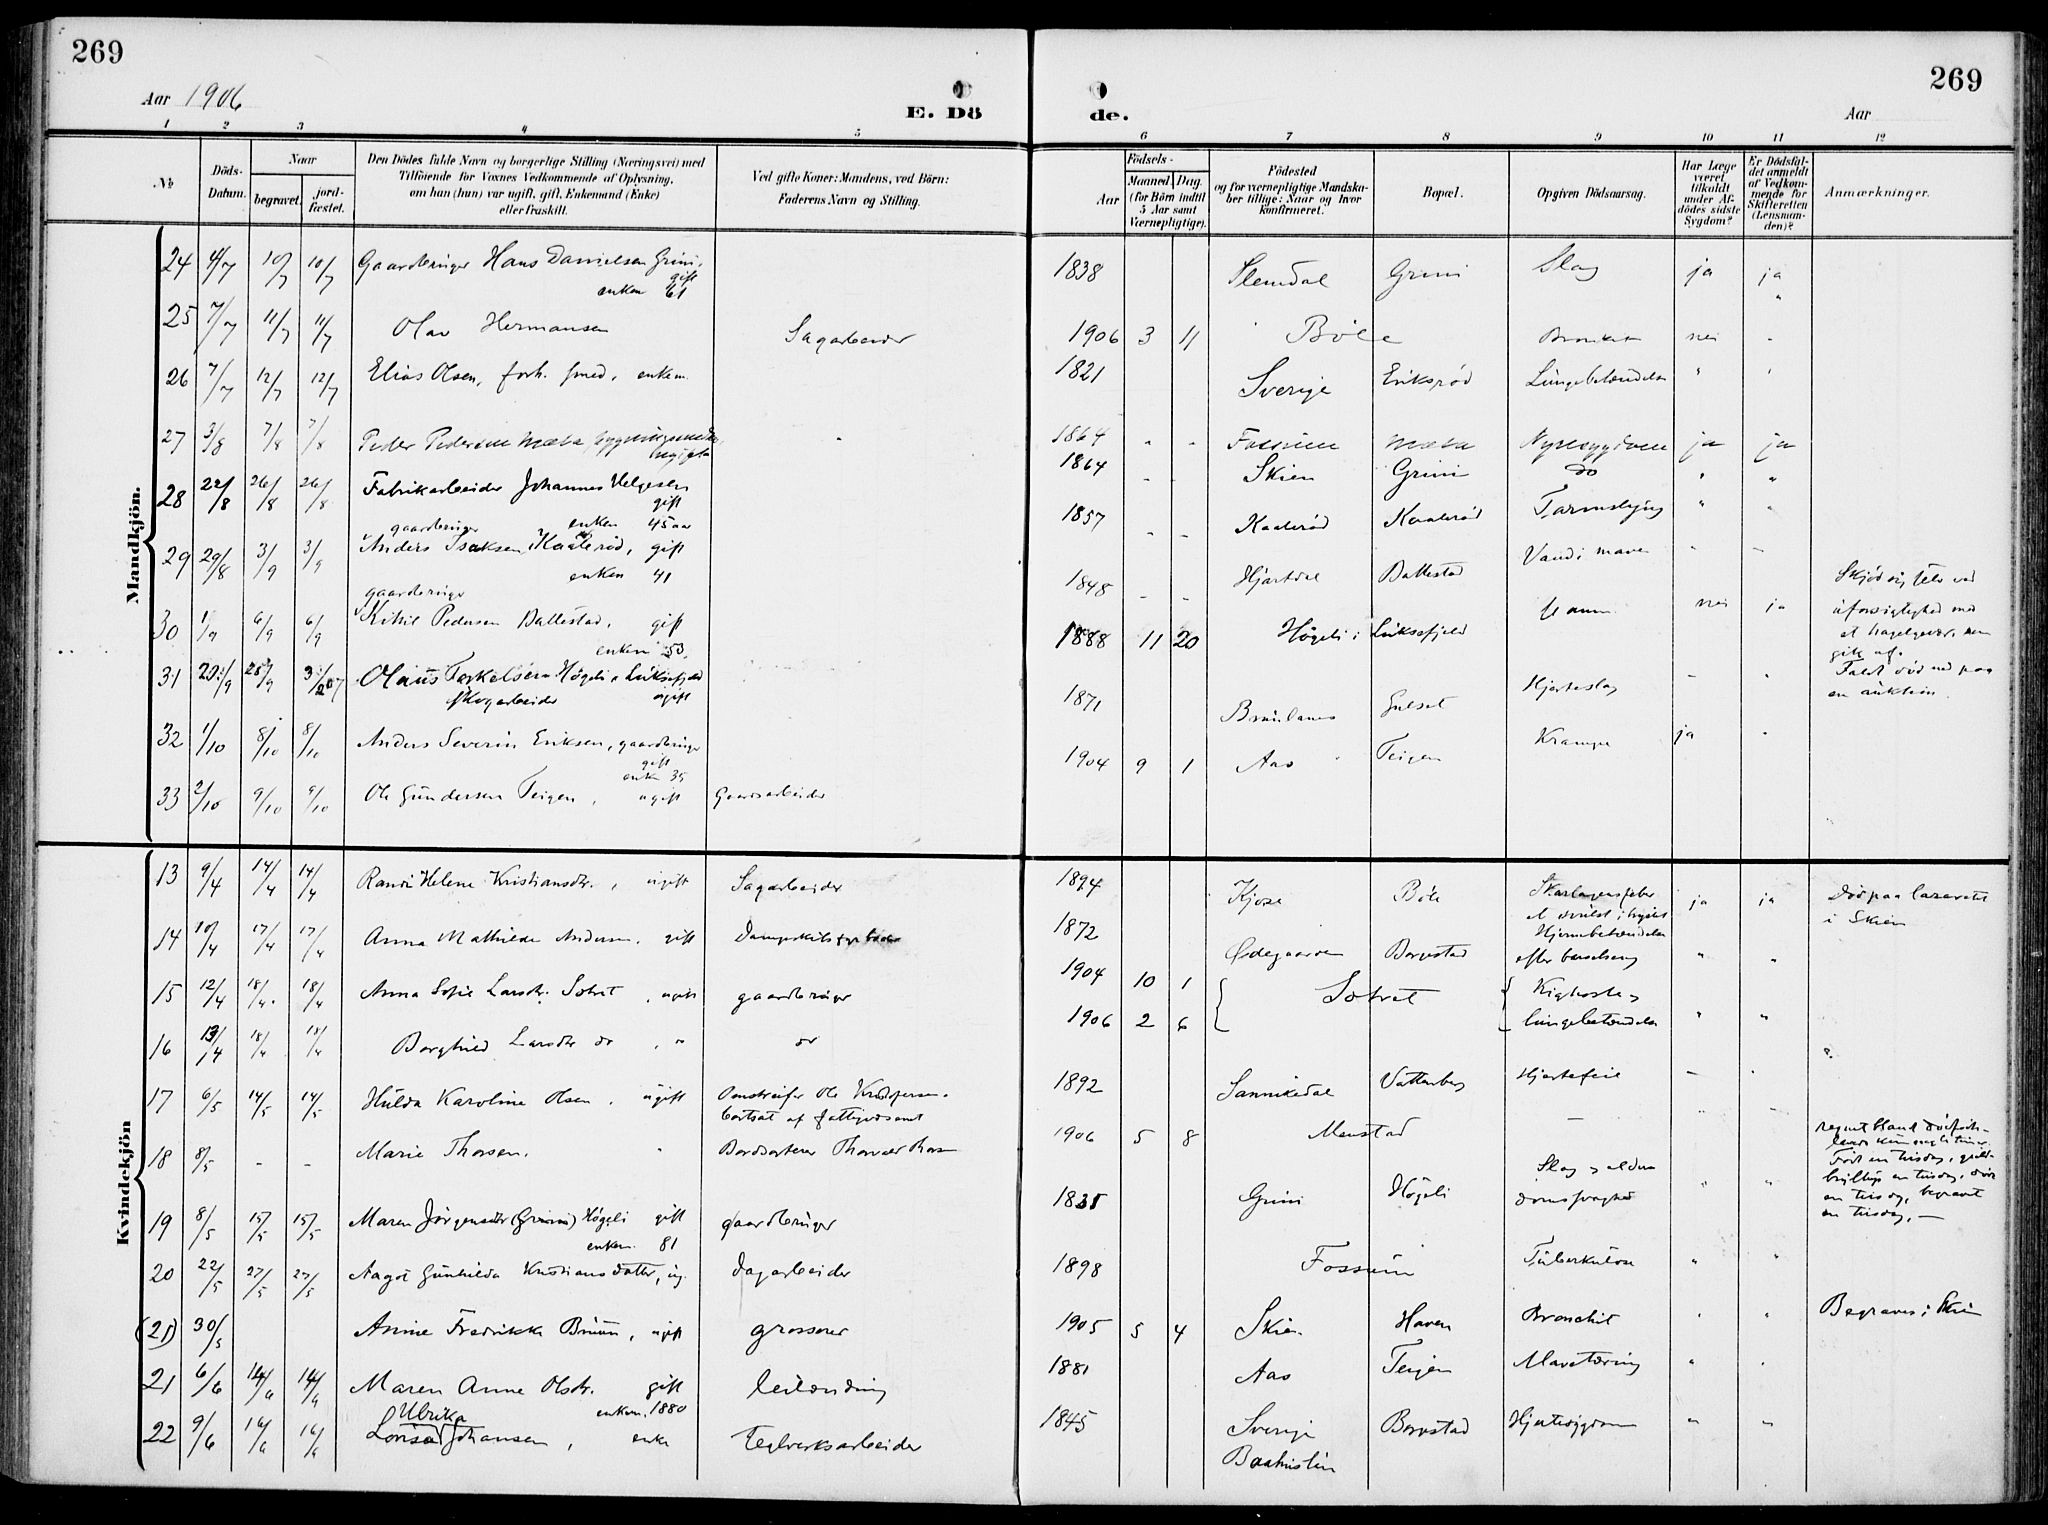 269
269
Aar 1906
E. Dö
de.
Aar
1 2 3 4 5 6 7 8 9 10 11 12
No
Döds-
Datum.
Naar
begravet.
jord-
fæstet.
Den Dödes fulde Navn og borgerlige Stilling (Næringsvei) med
Tilföiende for Voxnes Vedkommende af Oplysning,
om han (hun) var ugift, gift, Enkemand (Enke)
eller fraskilt.
Ved gifte Koner: Mandens, ved Börn:
Faderens Navn og Stilling.
Födsels-
Aar
Maaned. Dag.
(for Börn indtil
5 Aar samt
Værnepligtige).
Födested
og for værnepligtige Mandska-
ber tillige: Naar og hvor
konfirmeret.
Bopæl.
Opgiven Dödsaarsag.
Har Læge
været
tilkaldt
under Af-
dödes sidste
Sygdom?
Er Dödsfal-
det anmeldt
af Vedkom-
mende for
Skifteretten
(Lensman-
den)?
Anmærkninger.
Mandkjön.
24 4/7 10/7 10/7 Gaardbruger Hans Danielsen Grini, gift 1838 Slemdal Grini Slag ja ja
enken 61 "
25 7/7 11/7 11/7 Olav Hermansen Sagarbeider 1906 3 11 Böle nei
26 7/7 12/7 12/7 Elias Olsen, forh. smed, enkem. 1821 Sverige Eriksrød Lungebetændelse "
27 3/8 7/8 7/8 Peder Pedersen Mæla 1864 - - Fossum Mæla Nyresygdom ja ja
28 22/8 26/8 26/8 Fabrikarbeider Johannes Helgesen gift 1864 - - Skien Grini do " "
enken 45 aar
gaardbruger
29 29/8 3/9 3/9 Anders Isaksen Kaaterød, gift 1857 - - Kaaterød Kaaterød " "
enken 41
gaardbruger
30 1/9 6/9 6/9 Kittil Pedersen Ballestad, gift 1848 - - Hjartdal Ballestad Vand i maven - -
enken 53
31 20/9 25/9 Olaus Torkelsen Høgeli, Luksefjeld 1888 11 20 Høgeli i Luksefjeld nei ja Skjød sig selv ved
uforsigtighed med
et hagelgevær, som
gik af.
skogarbeider ugift
32 1/10 8/10 8/10 Anders Severin Eriksen, gaardbruger 1871 Gulset Hjerteslag - Faldt død ned paa
en auktion.
gift
enke 35
33 2/10 9/10 9/10 Ole Gundersen Teigen, ugift Gaardsarbeider 1904 9 1 Aas Teigen Krampe ja
Kvindekjön
13 9/4 14/4 14/4 Randi Helene Kristiansdtr., ugift Sagarbeider 1894 Kjose Böle Skarlagensfeber ja ja Död paa lazarettet
i Skien
14 10/4 17/4 17/4 Anna Mathilde Andersen, gift 1872 Ødegaarden Borgestad Hjernebetændelse
efter barselseng " "
15 12/4 18/4 18/4 Anna Sofie Larsdtr. Solvet, ugift gaardbruger 1904 10 1 Solvet Kighoste og
16 13/4 18/4 18/4 Borghild Larsdtr do, " do 1906 2 6 lungebetændelse " "
17 6/5 14/5 14/5 Hulda Karoline Olsen, ugift Omstreifer Ole
bortsat af fattigvæsenet 1892 Sannikedal Vattenberg Hjertefeil -
18 8/5 - - Marie Thorsen. " 1906 5 8 Menstad -
19 8/5 15/5 15/5 Maren Jörgensdtr (Grini) Høgeli gift gaardbruger 1835 Grini Høgeli Slag og alder-
domssvaghed " "
Født en tirsdag, guld-
bryllup en tirsdag, død
en tirsdag, begravet
en tirsdag. -
enkem. 81
20 22/5 27/5 27/5 Aagot Gunhilda Kristiansdatter, ug. Dagarbeider 1898 Fossum Tuberkulose " "
(21) 30/5 Annie Fredrikke Bruun, ugift grosserer 1905 5 4 Skien Haven Bronchit Begraves i Skien
21 6/6 14/6 14/6 Maren Anne Olsdtr. gift leilænding 1881 Aas Teigen Mavetæring "
enkem. 1880
Ulrika
22 9/6 16/6 16/6 Lovisa Johansen, enke Teglverksarbeider 1845 Sverige Borgestad Hjertesygdom " "
Baahuslen